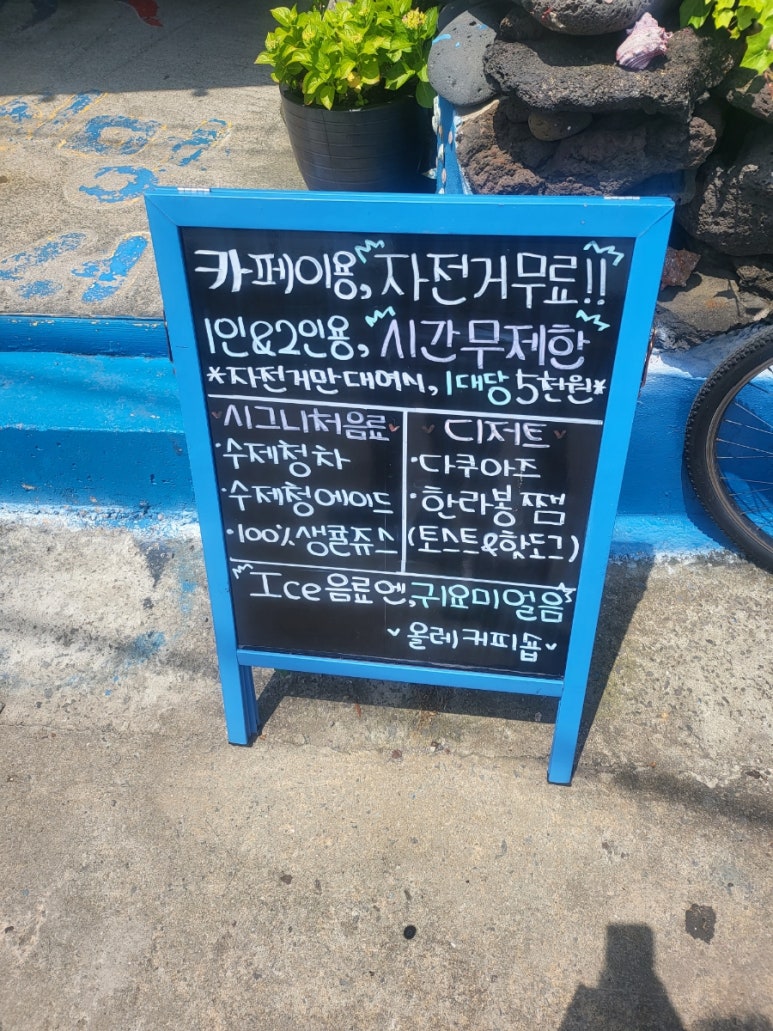 카페이용, 자전거무료!!
1인&2인용, 시간무제한
*자전거만 대여시, 1대당 5천원*
시그니처음료
·수제청차
·수제청에이드
·100% 생귤쥬스
디저트
·다쿠아즈
·한라봉 쨈
(토스트&핫도그)
Ice 음료엔, 귀요미얼음
올레커피숍